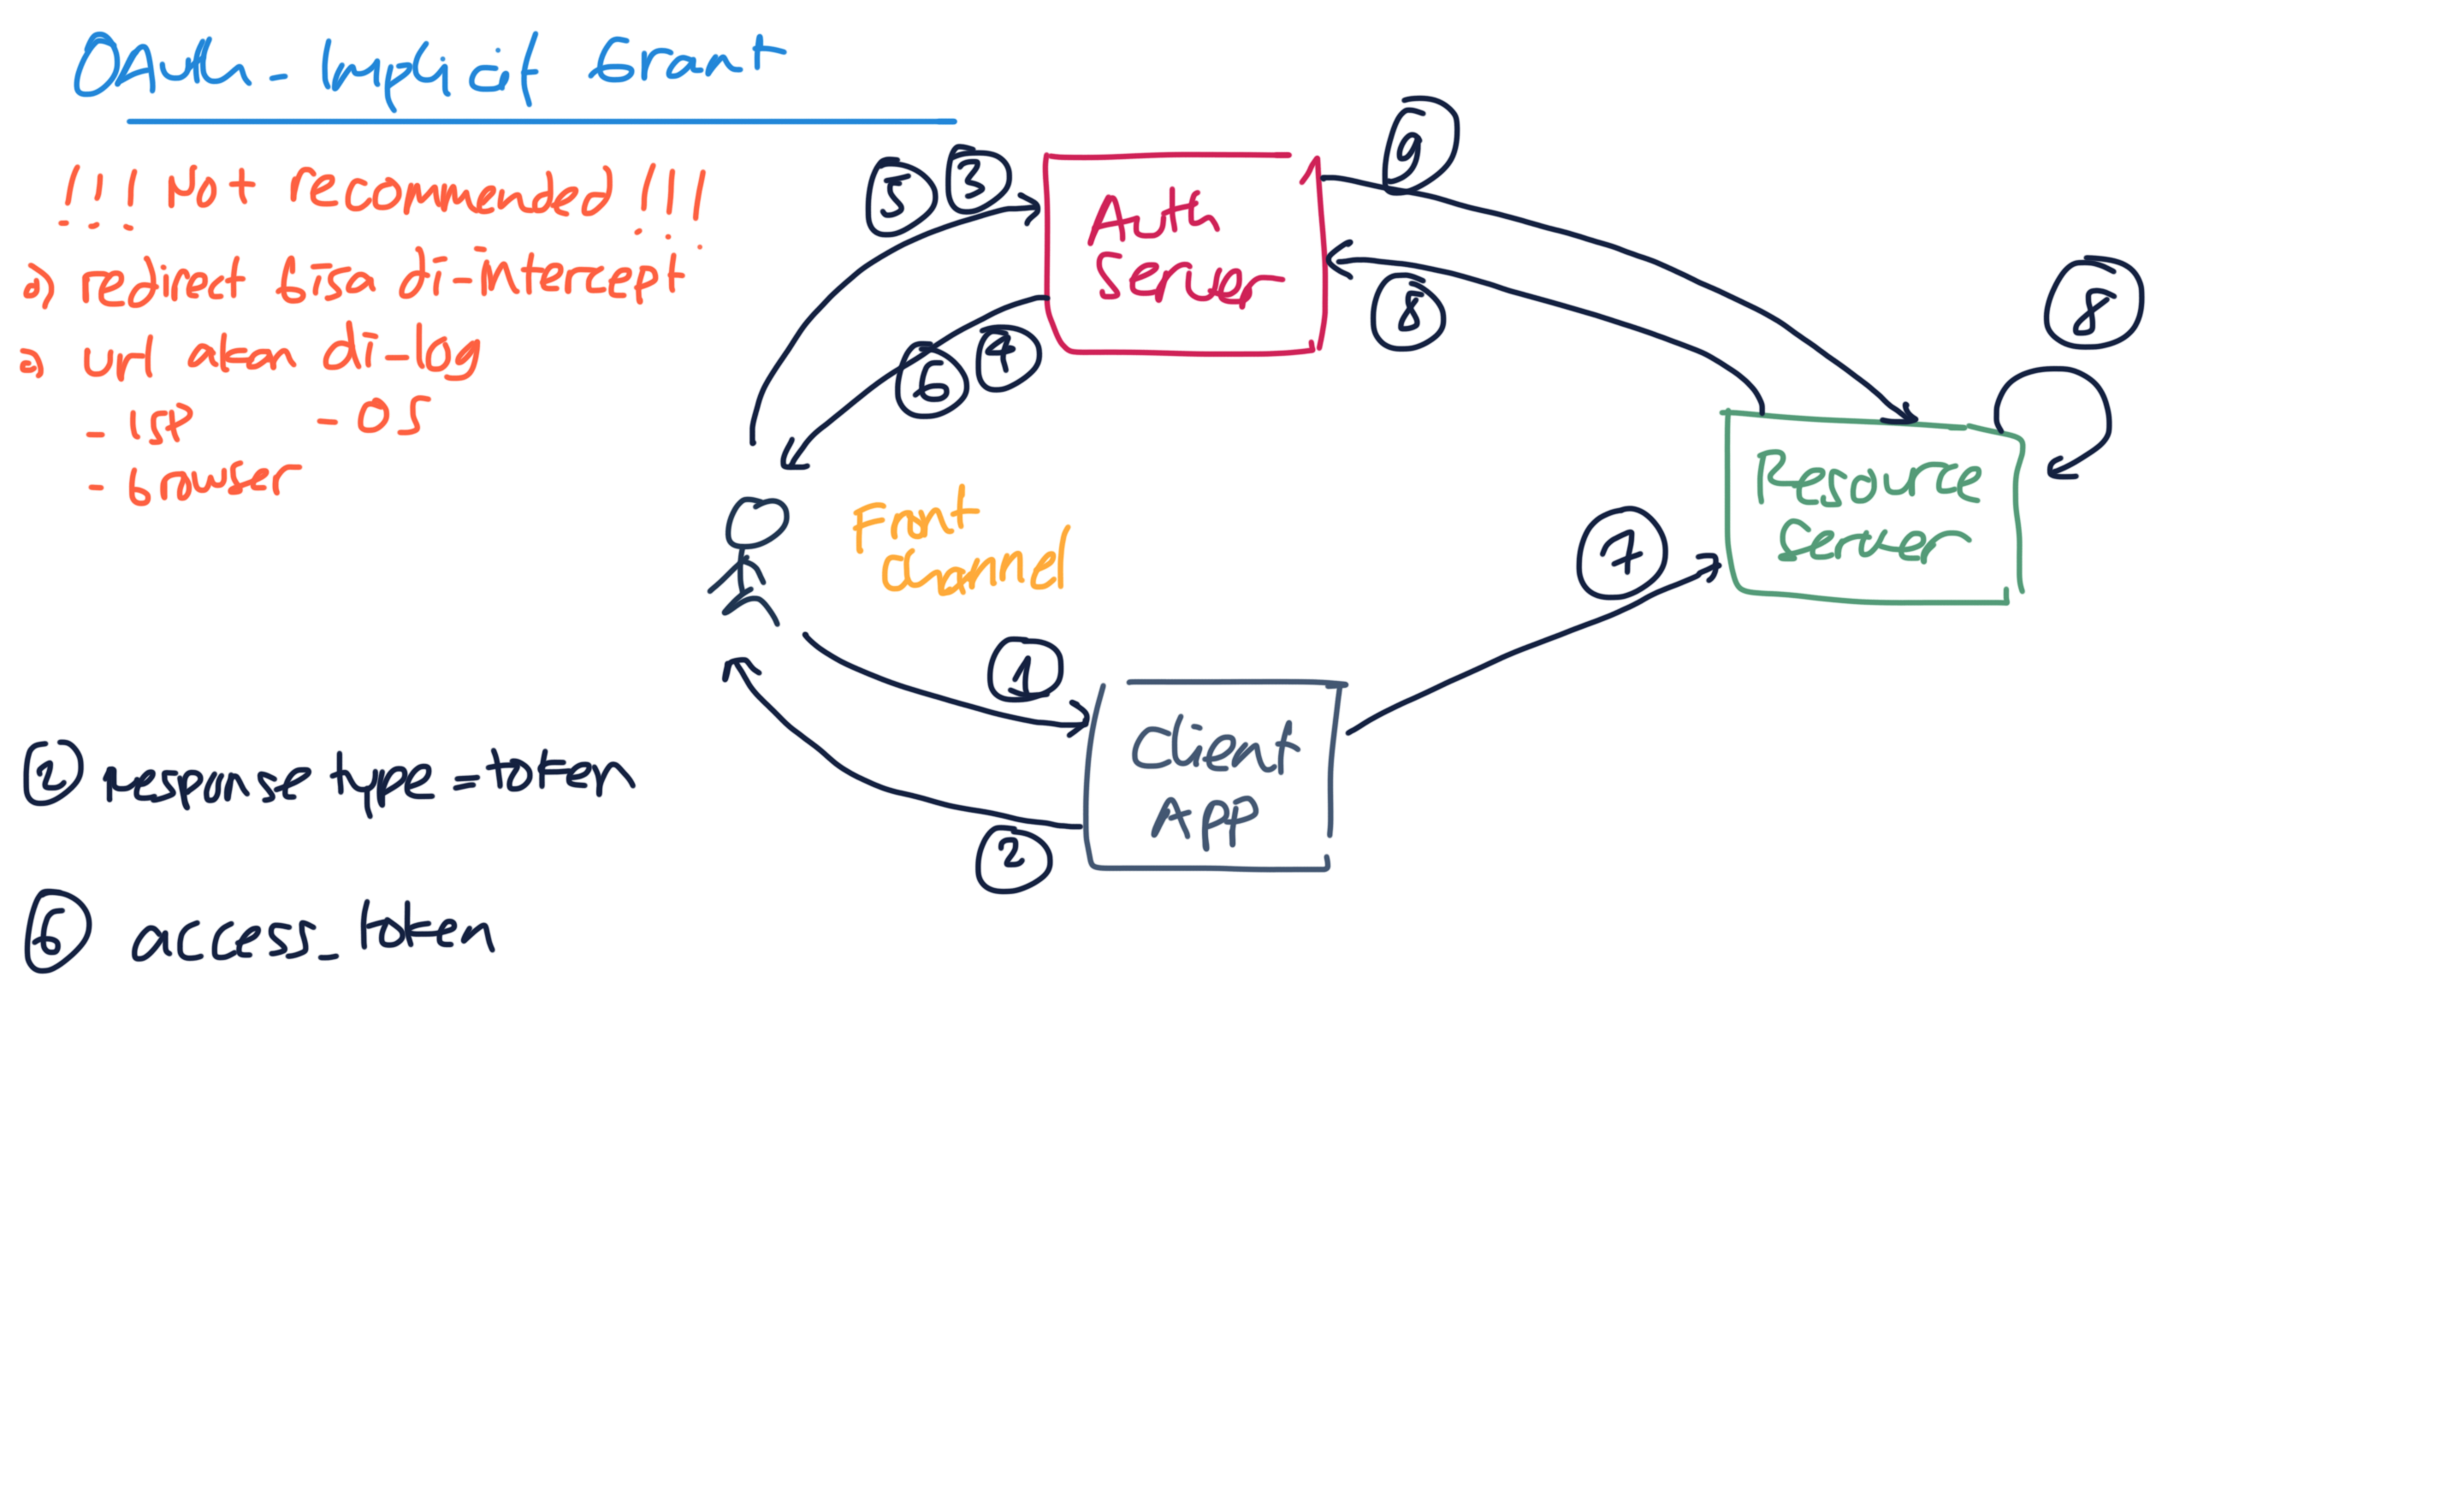 OAuth - Implicit Grant
!!! Not recommended !!!
a) redirect bisa di-intercept
a) url akan di-log
- ISP - OS
- browser
5 3
Auth
Server
9
6 4
8
8
Front
Channel
Resource
Server
7
1
Client
App
2
2 response type = token
6 access_token